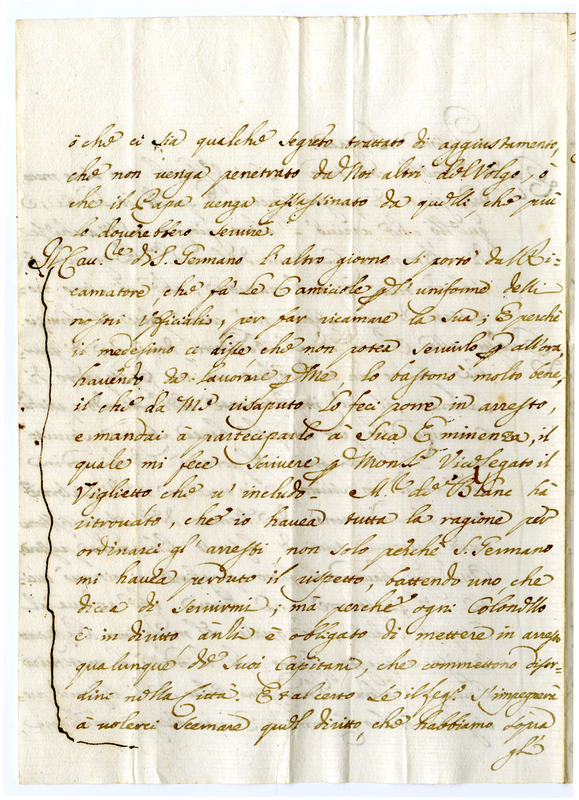 ò che ci sia qualche segreto trattato di aggiustamento,
che non venga penetrato da Noi altri del Volgo, ò
che il Capa venga assassinato da quelli, che più
lo dovrebbero servire.
Il Cav.re di S. Germano l'altro giorno si portò dal Ri-
camatore, che fà le Camiciole p l'uniforme delli
nostri Vfficiali, per far ricamare la sua; E perche
il medesimo ci disse che non potea servirlo p allora,
havendo da lavorare p Me, lo bastonò molto bene,
il che da Me risaputo lo feci porre in arresto,
e mandai à parteciparlo à Sua Eminenza, il
quale mi fece scrivere p Monsr Vicelegato il
Viglietto che v'includo. M. de Blanc hà
ritrovato, che io havea tutta la ragione per
ordinarci gl'arresti non solo perche S. Germano
mi havea perduto il rispetto, battendo uno, che
dicea di servirmi; mà perche ogni Colonello
è in diritto anzi è obligato di mettere in arresto
qualunque de suoi Capitani, che commettono disor-
dini nella Città. E al certo se il s'impegnerà
à volerci scemare quel diritto, che habbiamo sopra
gl'